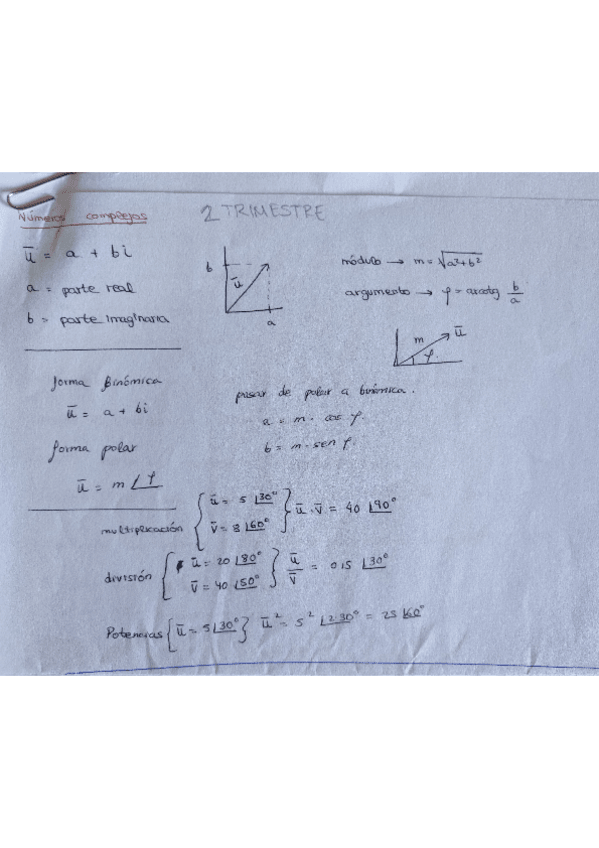 Números complejos
2 TRIMESTRE
ū = a + bi
a = parte real
b = parte imaginaria
b
ū
a
módulo → m = √a²+b²
argumento → φ = arcotg b/a
m ū
φ
forma Binómica
ū = a + bi
forma polar
ū = m∠φ
pasar de polar a binómica.
a = m · cos φ.
b = m · sen φ.
multiplicación { ū = 5 ∠30° v̄ = 8 ∠60° } ū · v̄ = 40 ∠90°
división { ū = 20 ∠80° v̄ = 40 ∠50° } ū/v̄ = 0'5 ∠30°
Potencias { ū = 5∠30° } ū² = 5² ∠2·30° = 25 ∠60°